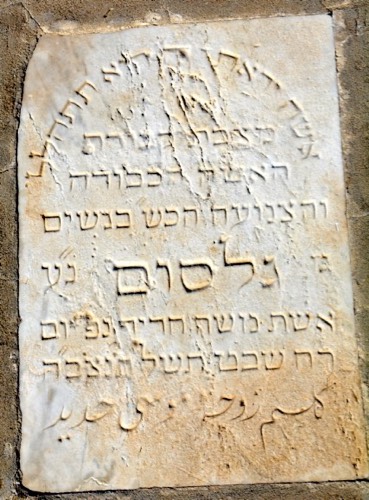 אשה יראת היא תתהלל
מצבת קבורת
האשה הכבודה
והצנועה הכש בנשים
מ׳ גלסום נ״ע
אשת משה חדיד נפ יום
רח שבט תשל תנצבה
كلسم زوجة موسى حديد